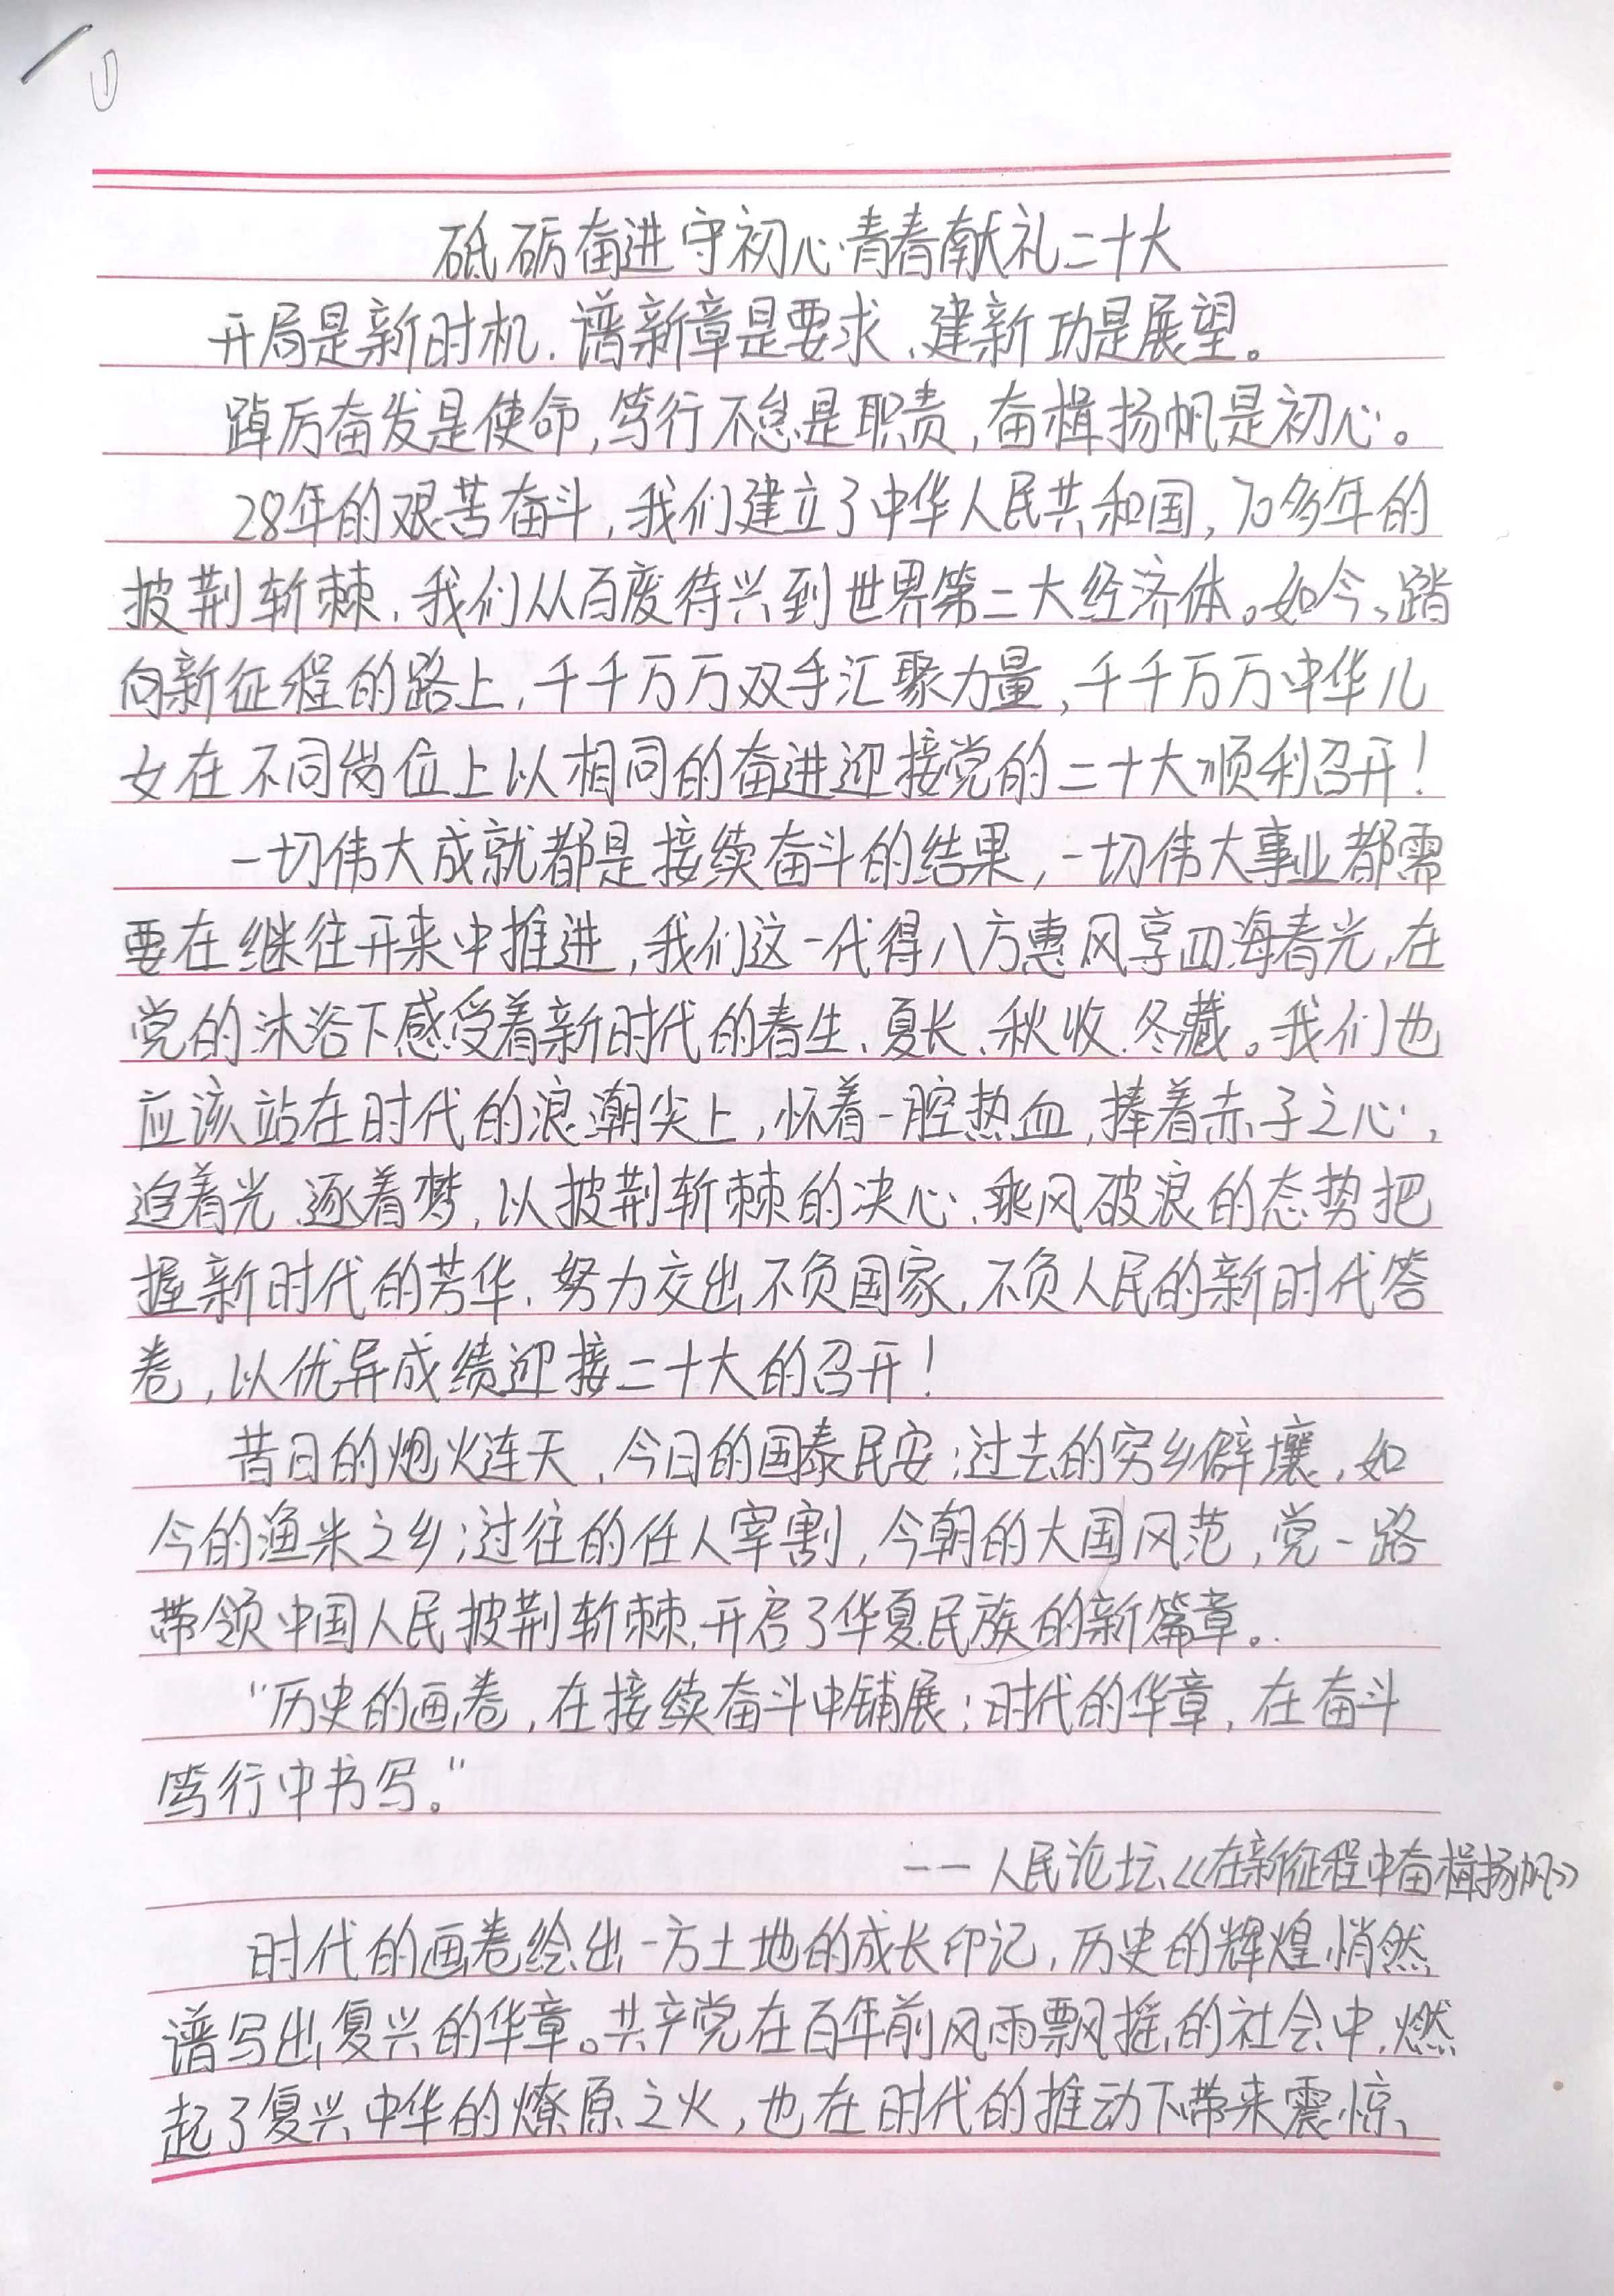 ①
砥砺奋进守初心·青春献礼二十大
开局是新时机、谱新章是要求、建新功是展望。
踔厉奋发是使命,笃行不怠是职责,奋楫扬帆是初心。
28年的艰苦奋斗,我们建立了中华人民共和国,70多年的
披荆斩棘,我们从百废待兴到世界第二大经济体。如今、踏
向新征程的路上,千千万万双手汇聚力量,千千万万中华儿
女在不同岗位上以相同的奋进迎接党的二十大顺利召开!
一切伟大成就都是接续奋斗的结果,一切伟大事业都需
要在继往开来中推进,我们这一代得八方惠风享四海春光,在
党的沐浴下感受着新时代的春生、夏长、秋收、冬藏。我们也
应该站在时代的浪潮尖上,怀着一腔热血,捧着赤子之心,
追着光、逐着梦,以披荆斩棘的决心、乘风破浪的态势把
握新时代的芳华,努力交出不负国家,不负人民的新时代答
卷,以优异成绩迎接二十大的召开!
昔日的炮火连天,今日的国泰民安;过去的穷乡僻壤,如
今的渔米之乡;过往的任人宰割,今朝的大国风范,党一路
带领中国人民披荆斩棘,开启了华夏民族的新篇章。
"历史的画卷,在接续奋斗中铺展;时代的华章,在奋斗
笃行中书写。"
——人民论坛《在新征程中奋楫扬帆》
时代的画卷绘出一方土地的成长印记,历史的辉煌悄然
谱写出复兴的华章。共产党在百年前风雨飘摇的社会中,燃
起了复兴中华的燎原之火,也在时代的推动下带来震惊、